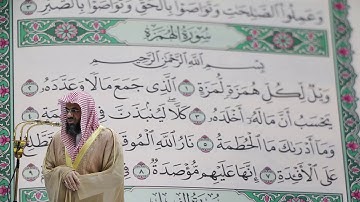 وَعَمِلُوا۟ ٱلصَّٰلِحَٰتِ وَتَوَاصَوْا۟ بِٱلْحَقِّ وَتَوَاصَوْا۟ بِٱلصَّبْرِ ٣
سُورَةُ الهُمَزَةِ
بِسْمِ ٱللَّهِ ٱلرَّحْمَٰنِ ٱلرَّحِيمِ
وَيْلٌ لِّكُلِّ هُمَزَةٍ لُّمَزَةٍ ١ ٱلَّذِى جَمَعَ مَالًا وَعَدَّدَهُۥ ٢
يَحْسَبُ أَنَّ مَالَهُۥٓ أَخْلَدَهُۥ ٣ كَلَّا لَيُنۢبَذَنَّ فِى
وَمَآ أَدْرَىٰكَ مَا ٱلْحُطَمَةُ ٥ نَارُ ٱللَّهِ ٱلْمُوقَدَةُ
عَلَى ٱلْأَفْـِٔدَةِ ٧ إِنَّهَا عَلَيْهِم مُّؤْصَدَةٌ ٨